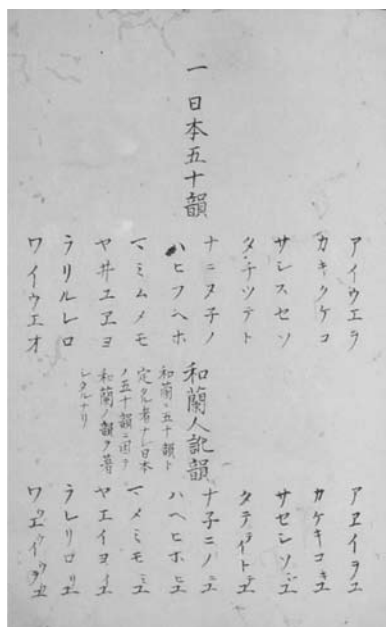 一 日本五十韻
アイウエヲ
カキクケコ
サシスセソ
タチツテト
ナニヌ子ノ
ハヒフヘホ
マミムメモ
ヤ井ユヱヨ
ラリルレロ
ワイウエオ
和蘭人訛韻
和蘭ニ五十韻ト
定タル者ナシ日本
ノ五十韻ニ因テ
和蘭ノ韻ヲ著
シタルナリ
アヱイヲユ
カケキコキユ
サセシソシユ
タテティトテユ
ナ子ニノニユ
ハヘヒホヒユ
マメミモミユ
ヤエイヨイユ
ラレリロリユ